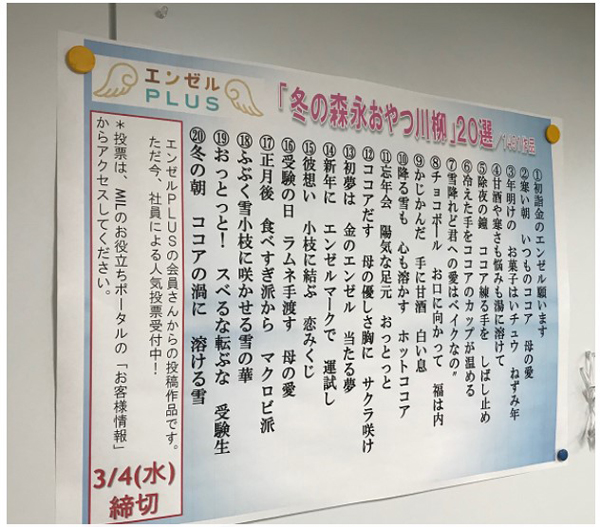 エンゼル
PLUS
「冬の森永おやつ川柳」20選
①初詣金のエンゼル願います
②寒い朝 いつものココア 母の愛
③年明けの お菓子はハイチュウ ねずみ年
④甘酒や寒さも悩みも湯に溶けて
⑤除夜の鐘 ココア練る手を しばし止め
⑥冷えた手をココアのカップが温める
⑦雪降れど君への愛はベイクなの〟
⑧チョコボール お口に向かって 福は内
⑨かじかんだ 手に甘酒 白い息
⑩降る雪も 心も溶かす ホットココア
⑪忘年会 陽気な足元 おっとっと
⑫ココアだす 母の優しさ胸に サクラ咲け
⑬初夢は 金のエンゼル 当たる夢
⑭新年に エンゼルマークで 運試し
⑮彼想い 小枝に結ぶ 恋みくじ
⑯受験の日 ラムネ手渡す 母の愛
⑰正月後 食べすぎ派から マクロビ派
⑱ふぶく雪小枝に咲かせる雪の華
⑲おっとっと! スベるな転ぶな 受験生
⑳冬の朝 ココアの渦に 溶ける雪
エンゼルPLUSの会員さんからの投稿作品です。
ただ今、社員による人気投票受付中!
*投票は、MIIのお役立ちポータルの「お客様情報」
からアクセスしてください。
3/4(水)
締切